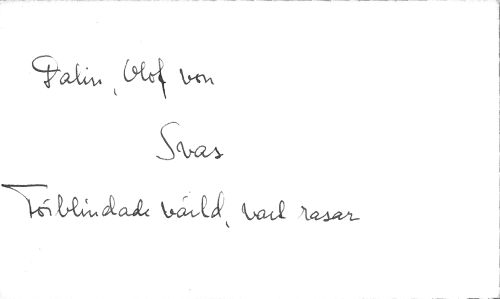 Dalin, Olof von
Svas
Förblindade värld, vad rasar